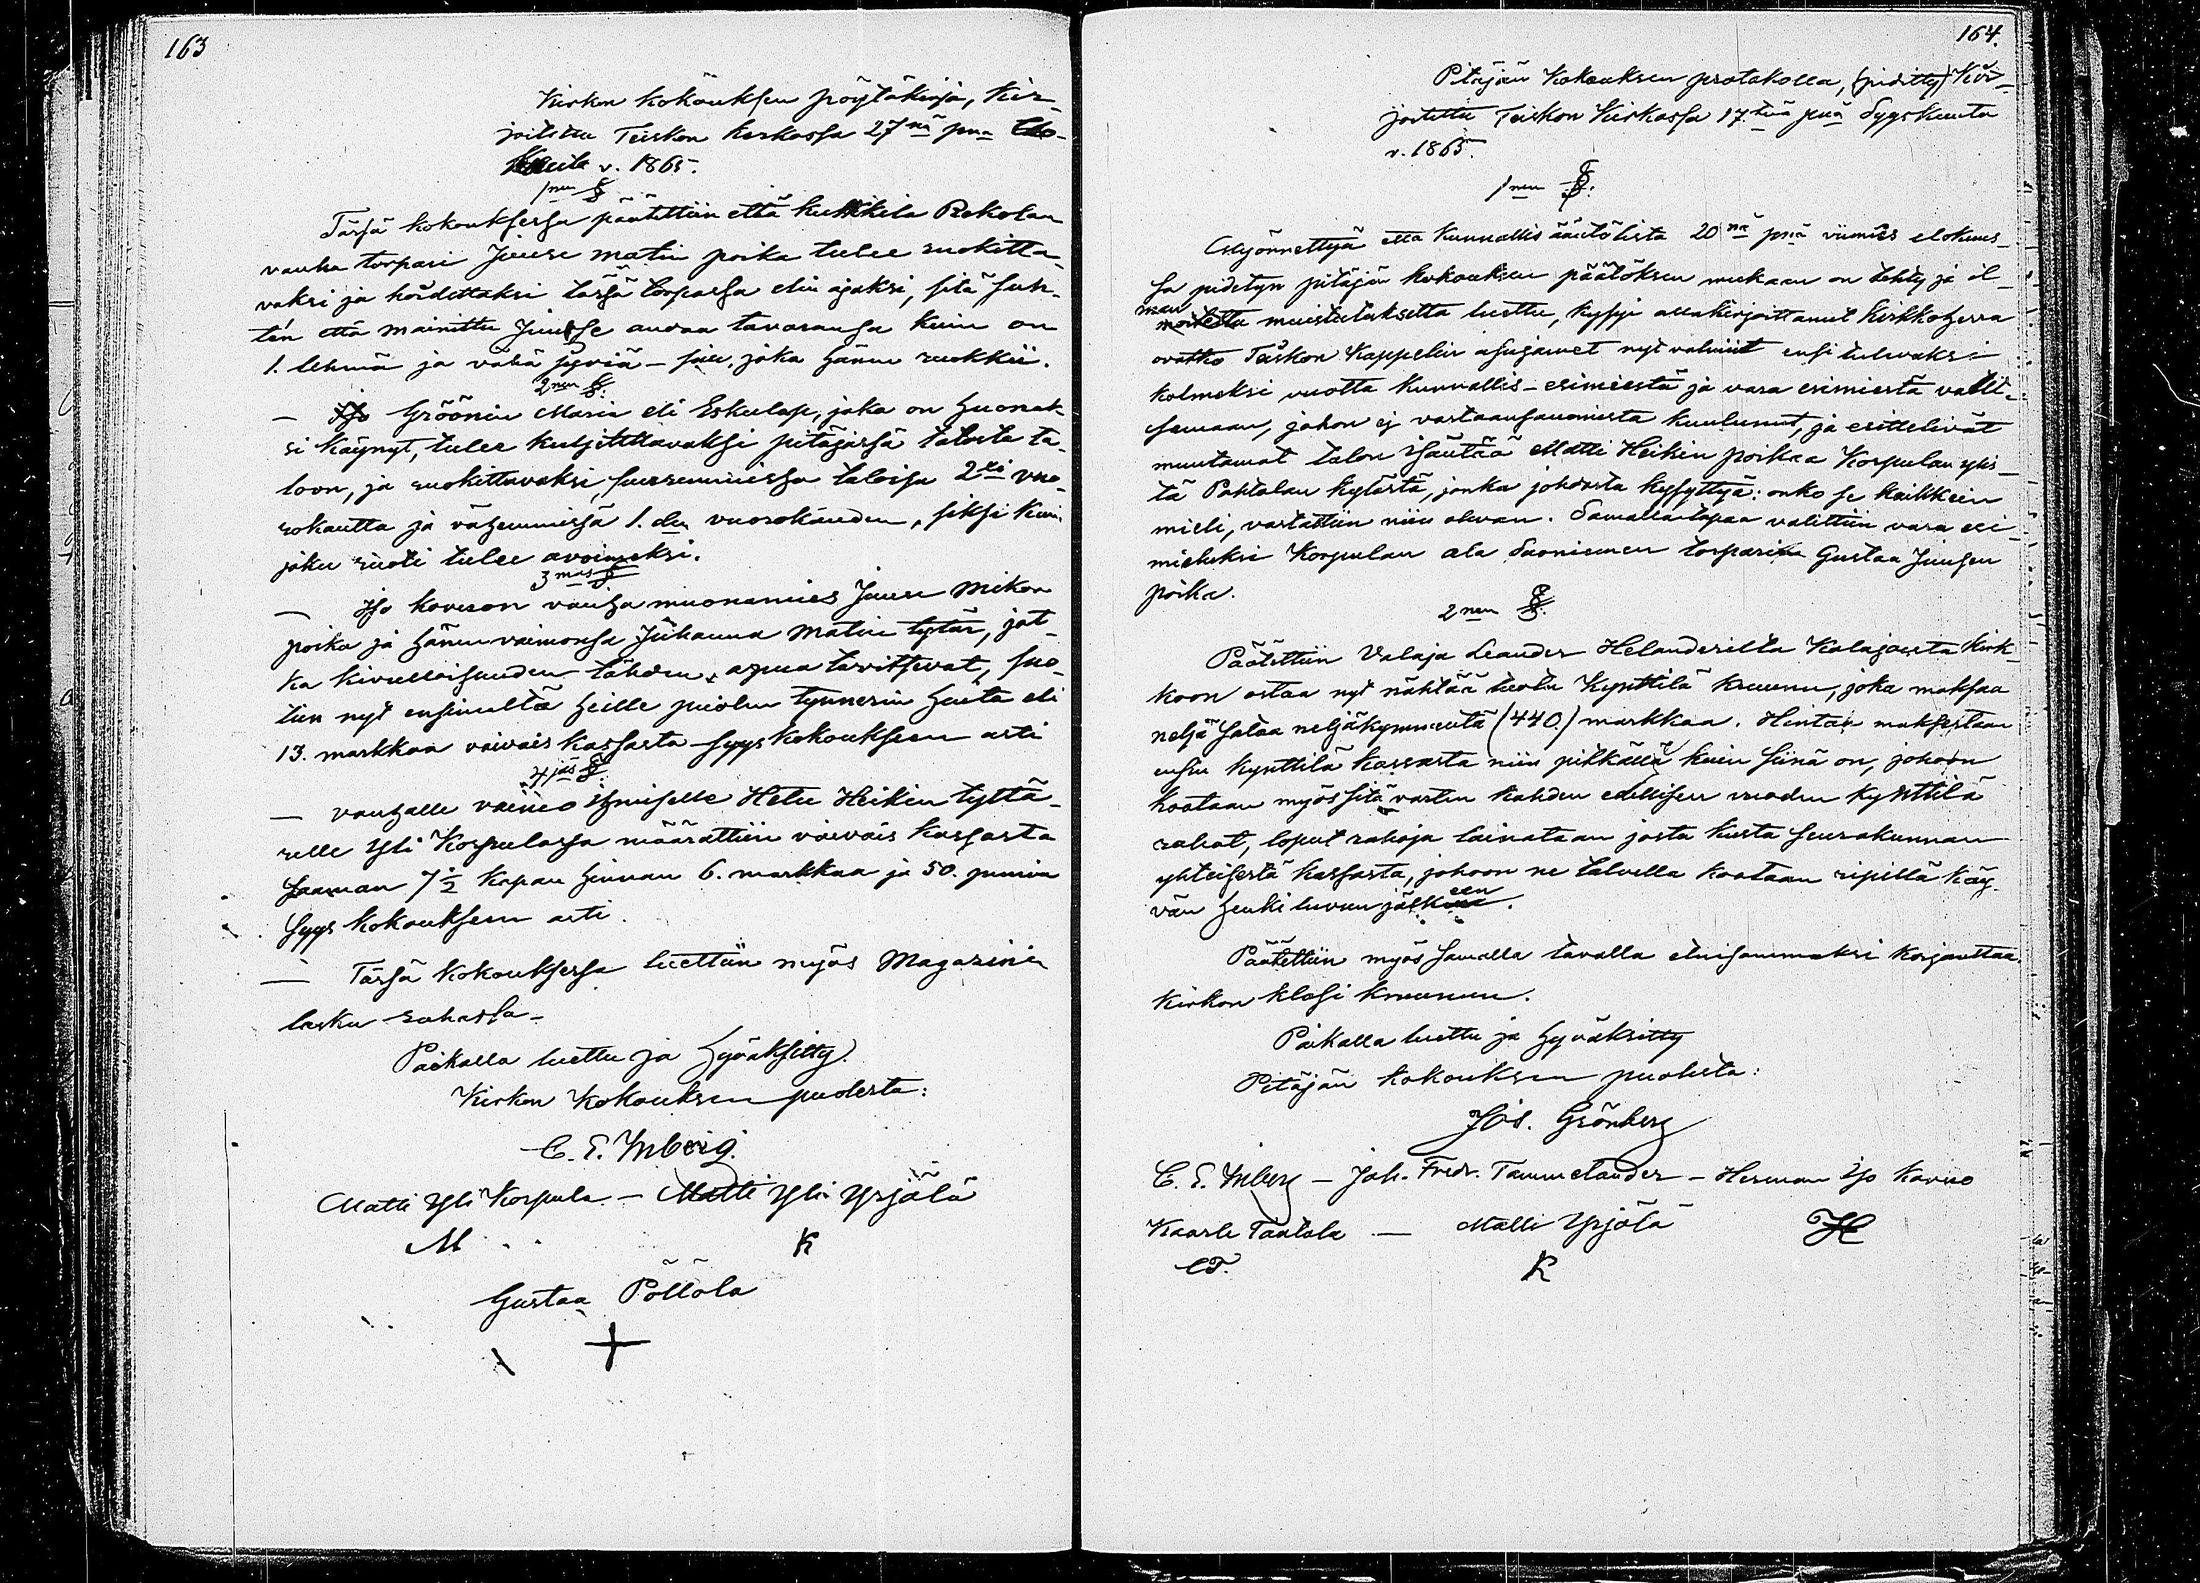 163
Kirkon kokouksen pöytäkirja, kir-
joitettu Teiskon kirkossa 27nä pnä Elo-
kuuta v. 1865.
1nen §
Tässä kokouksessa päätettiin että Rekolan
vanha torpari Juuse Matin poika tulee ruokitta-
vaksi ja hoidettaksi tässä torpassa elin ajaksi, sitä suh-
ten että mainittu Juuse antaa tavaransa kuin on
1. lehmä ja vähä jyviä - sille, joka hänen ruokkii.
2nen §.
— Gröönin Maria eli Eskulap, joka on huonok-
si käynyt, tulee kuljetettavaksi pitäjässä talosta ta-
loon, ja ruokittavaksi suuremmissa taloissa 2xi vuo-
rokautta ja vähemmissä 1.den vuorokauden, siksi kuin
joku ruoti tulee avoimeksi.
3mas §
— Iso Kovison vanha muonamies Juuse Mikon
poika ja hänen vaimonsa Juhanna Matin tytär, jot-
ka kivulloisuuden tähden apua tarvitsevat, suo-
tiin nyt ensinnältä heille puolen tynnerin hinta eli
13. markkaa vaivais kassasta syys kokoukseen asti
4jäs §.
— vanhalle vaivio ihmiselle Hetu Heikin tyttä-
relle Yli Korpulassa määrättiin vaivais kassasta
saaman 7½ kapan hinnan 6. markkaa ja 50. penniä
syys kokoukseen asti.
— Tässä kokouksessa luettiin myös Magazinin
lasku rahassa-
Paikalla luettu ja hyväksitty.
Kirkon kokouksen puolesta:
C. E. Inberg.
Matti Yli Korpula - Matti Yli Yrjölä
M K
Gustaa Pöllölä
+
164.
Pitäjän kokouksen protokolla, (piditty) kir-
joitettu Teiskon kirkossa 17.tenä pnä Syyskuuta
v. 1865.
1nen §.
Myönnettyä että kunnallis ääntölista 20nä pnä viimeis elokuus-
sa pidetyn pitäjän kokouksen päätöksen mukaan on tehty ja il-
man
muistutuksetta luettu, kysyi allakirjoittanut kirkkoherra
ovatko Teiskon Kappelin asujamet nyt valmiit ensi tulevaksi
kolmeksi vuotta kunnallis-esimiestä ja vara esimiestä valit-
semaan, johon ej vastaansanomista kuulunut, ja esittelivät
muutamat talon isäntää Matti Heikin poikaa Korpulan ylis-
tä Pohtolan kylästä, jonka johdosta kysyttyä: onko se kaikkein
mieli, vastattiin niin olevan. Samalla tapaa valittiin vara esi-
mieheksi Korpulan ala Saoniemen torpari Gustaa Juusen
poika.
2nen §.
Päätettiin Valaja Leander Helanderilta Kalajasta kirk-
koon ostaa nyt nähtää tuotu kynttilä kruunu, joka maksaa
neljä sataa neljäkymmentä (440.) markkaa. Hintan maksetaan
ensin kynttilä kassasta niin pitkältä kuin siinä on, johon
kootaan myös sitä varten kahden edellisen vuoden kynttilä
rahat, loput rahoja lainataan josta kusta seurakunnan
yhteisestä kassasta, johoon ne talvella kootaan ripillä käy-
vän henki luvun jälkeen.
Päätettiin myös samalla tavalla etuisammaksi korjauttaa
kirkon klasi kruunun.
Paikalla luettu ja hyväksitty
Pitäjän kokouksen puolesta:
Joh. Grönberg
C. E. Inberg - Joh. Fredr. Tammelander - Herman Iso Koviso
Kaarle Taatala — Matti Yrjölä H
CT. K